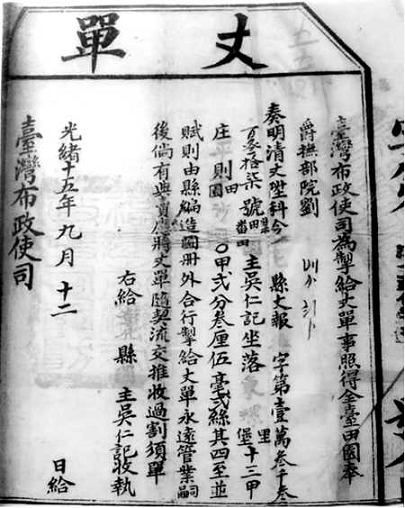 丈單
臺灣布政使司為掣給丈單事照得全臺田園奉
爵撫部院劉
奏明清丈陞科今 縣丈報 字第壹萬叁千叁
百 拾柒號 田 主吳仁記坐落 里堡十三甲
庄平則田園 〇甲弍分叁厘伍毫弍絲其四至並
賦則由縣編造圖冊外合行掣給丈單永遠管業嗣
後倘有典賣應將丈單隨契流交推收過割須單
右給 縣 主吳仁記收執
光緒十五年九月十二 日給
臺灣布政使司